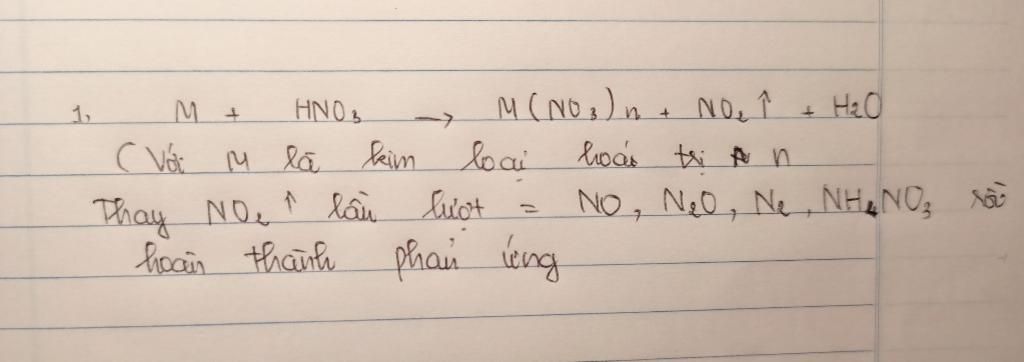 1, M + HNO₃ → M(NO₃)n + NO₂↑ + H₂O
(Với M là kim loại hoá trị n
Thay NO₂↑ lần lượt = NO, N₂O, N₂, NH₄NO₃ rồi
hoàn thành phản ứng